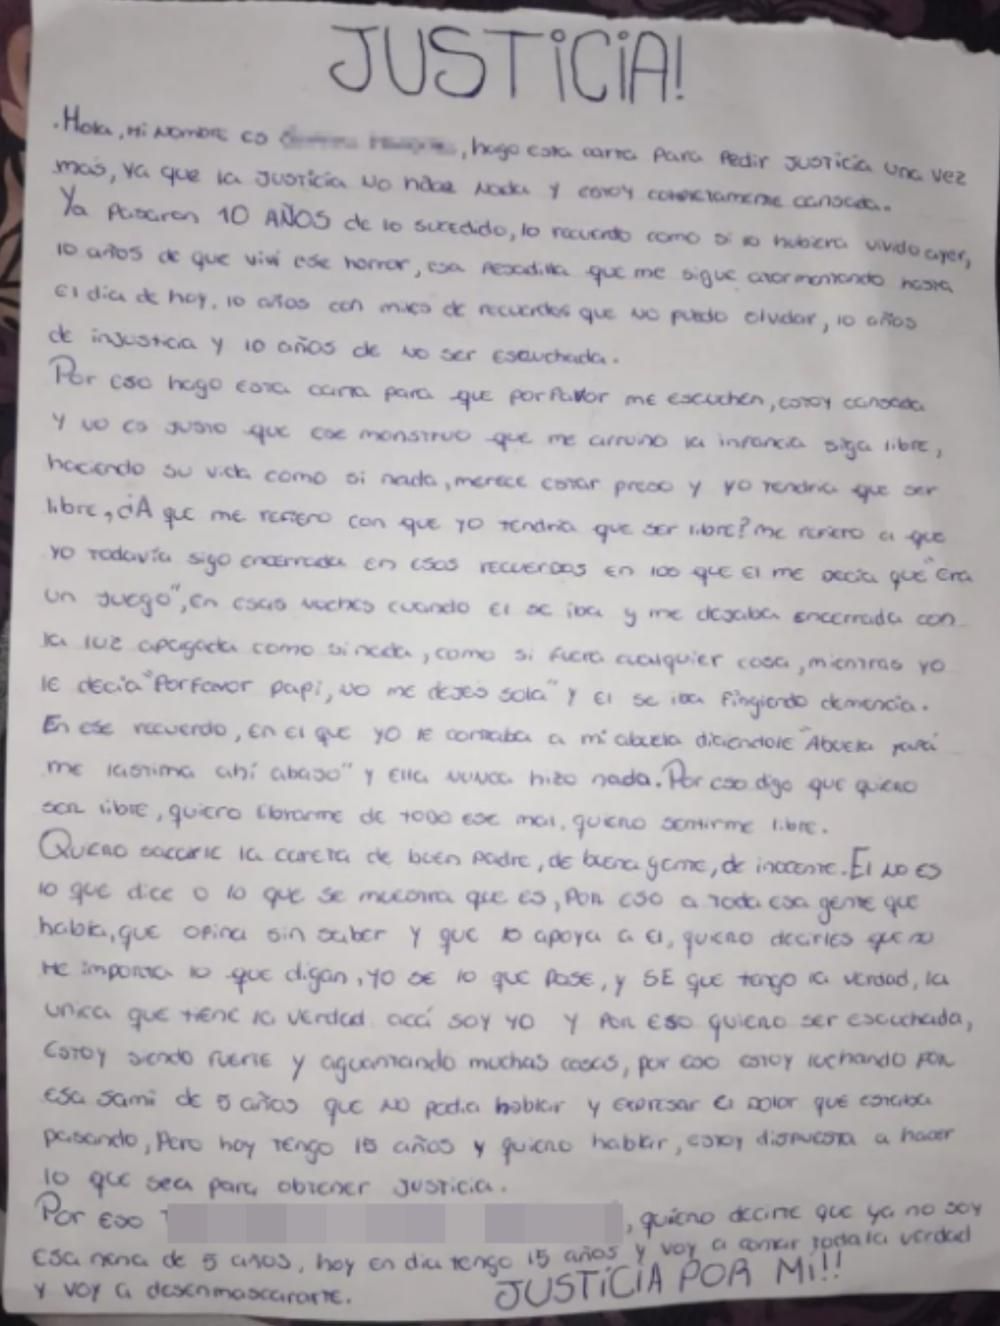 JUSTICIA!
. Hola, mi nombre es , hago esta carta para pedir justicia una vez
mas, ya que la justicia no hace nada y estoy completamente cansada.
Ya pasaron 10 AÑOS de lo sucedido, lo recuerdo como si lo hubiera vivido ayer,
10 años de que viví ese horror, esa pesadilla que me sigue atormentando hasta
el día de hoy, 10 años con miles de recuerdos que no puedo olvidar, 10 años
de injusticia y 10 años de no ser escuchada.
Por eso hago esta carta para que porfavor me escuchen, estoy cansada
y no es justo que ese monstruo que me arruino la infancia siga libre,
haciendo su vida como si nada, merece estar preso y yo tendria que ser
libre, ¿A que me refiero con que yo tendria que ser libre? me refiero a que
yo todavía sigo encerrada en esos recuerdos en los que el me decia que "era
un juego", en esas noches cuando el se iba y me dejaba encerrada con
la luz apagada como si nada, como si fuera cualquier cosa, mientras yo
le decía "Porfavor papi, no me dejes sola" y el se iba fingiendo demencia.
En ese recuerdo, en el que yo le contaba a mi abuela diciendole "Abuela papá
me lastima ahí abajo" y ella nunca hizo nada. Por eso digo que quiero
ser libre, quiero librarme de todo ese mal, quiero sentirme libre.
Quiero sacarle la careta de buen padre, de buena gente, de inocente. El no es
lo que dice o lo que se muestra que es, Por eso a toda esa gente que
habla, que opina sin saber y que lo apoya a el, quiero decirles que no
me importa lo que digan, yo se lo que pase, y SE que tengo la verdad, la
unica que tiene la verdad acá soy yo y por eso quiero ser escuchada,
Estoy siendo fuerte y aguantando muchas cosas, por eso estoy luchando por
esa sami de 5 años que no podia hablar y expresar el dolor que estaba
pasando, Pero hoy tengo 15 años y quiero hablar, estoy dispuesta a hacer
lo que sea para obtener justicia.
Por eso , quiero decirte que ya no soy
esa nena de 5 años, hoy en dia tengo 15 años y voy a contar toda la verdad
y voy a desenmascararte.
JUSTICIA POR MI!!